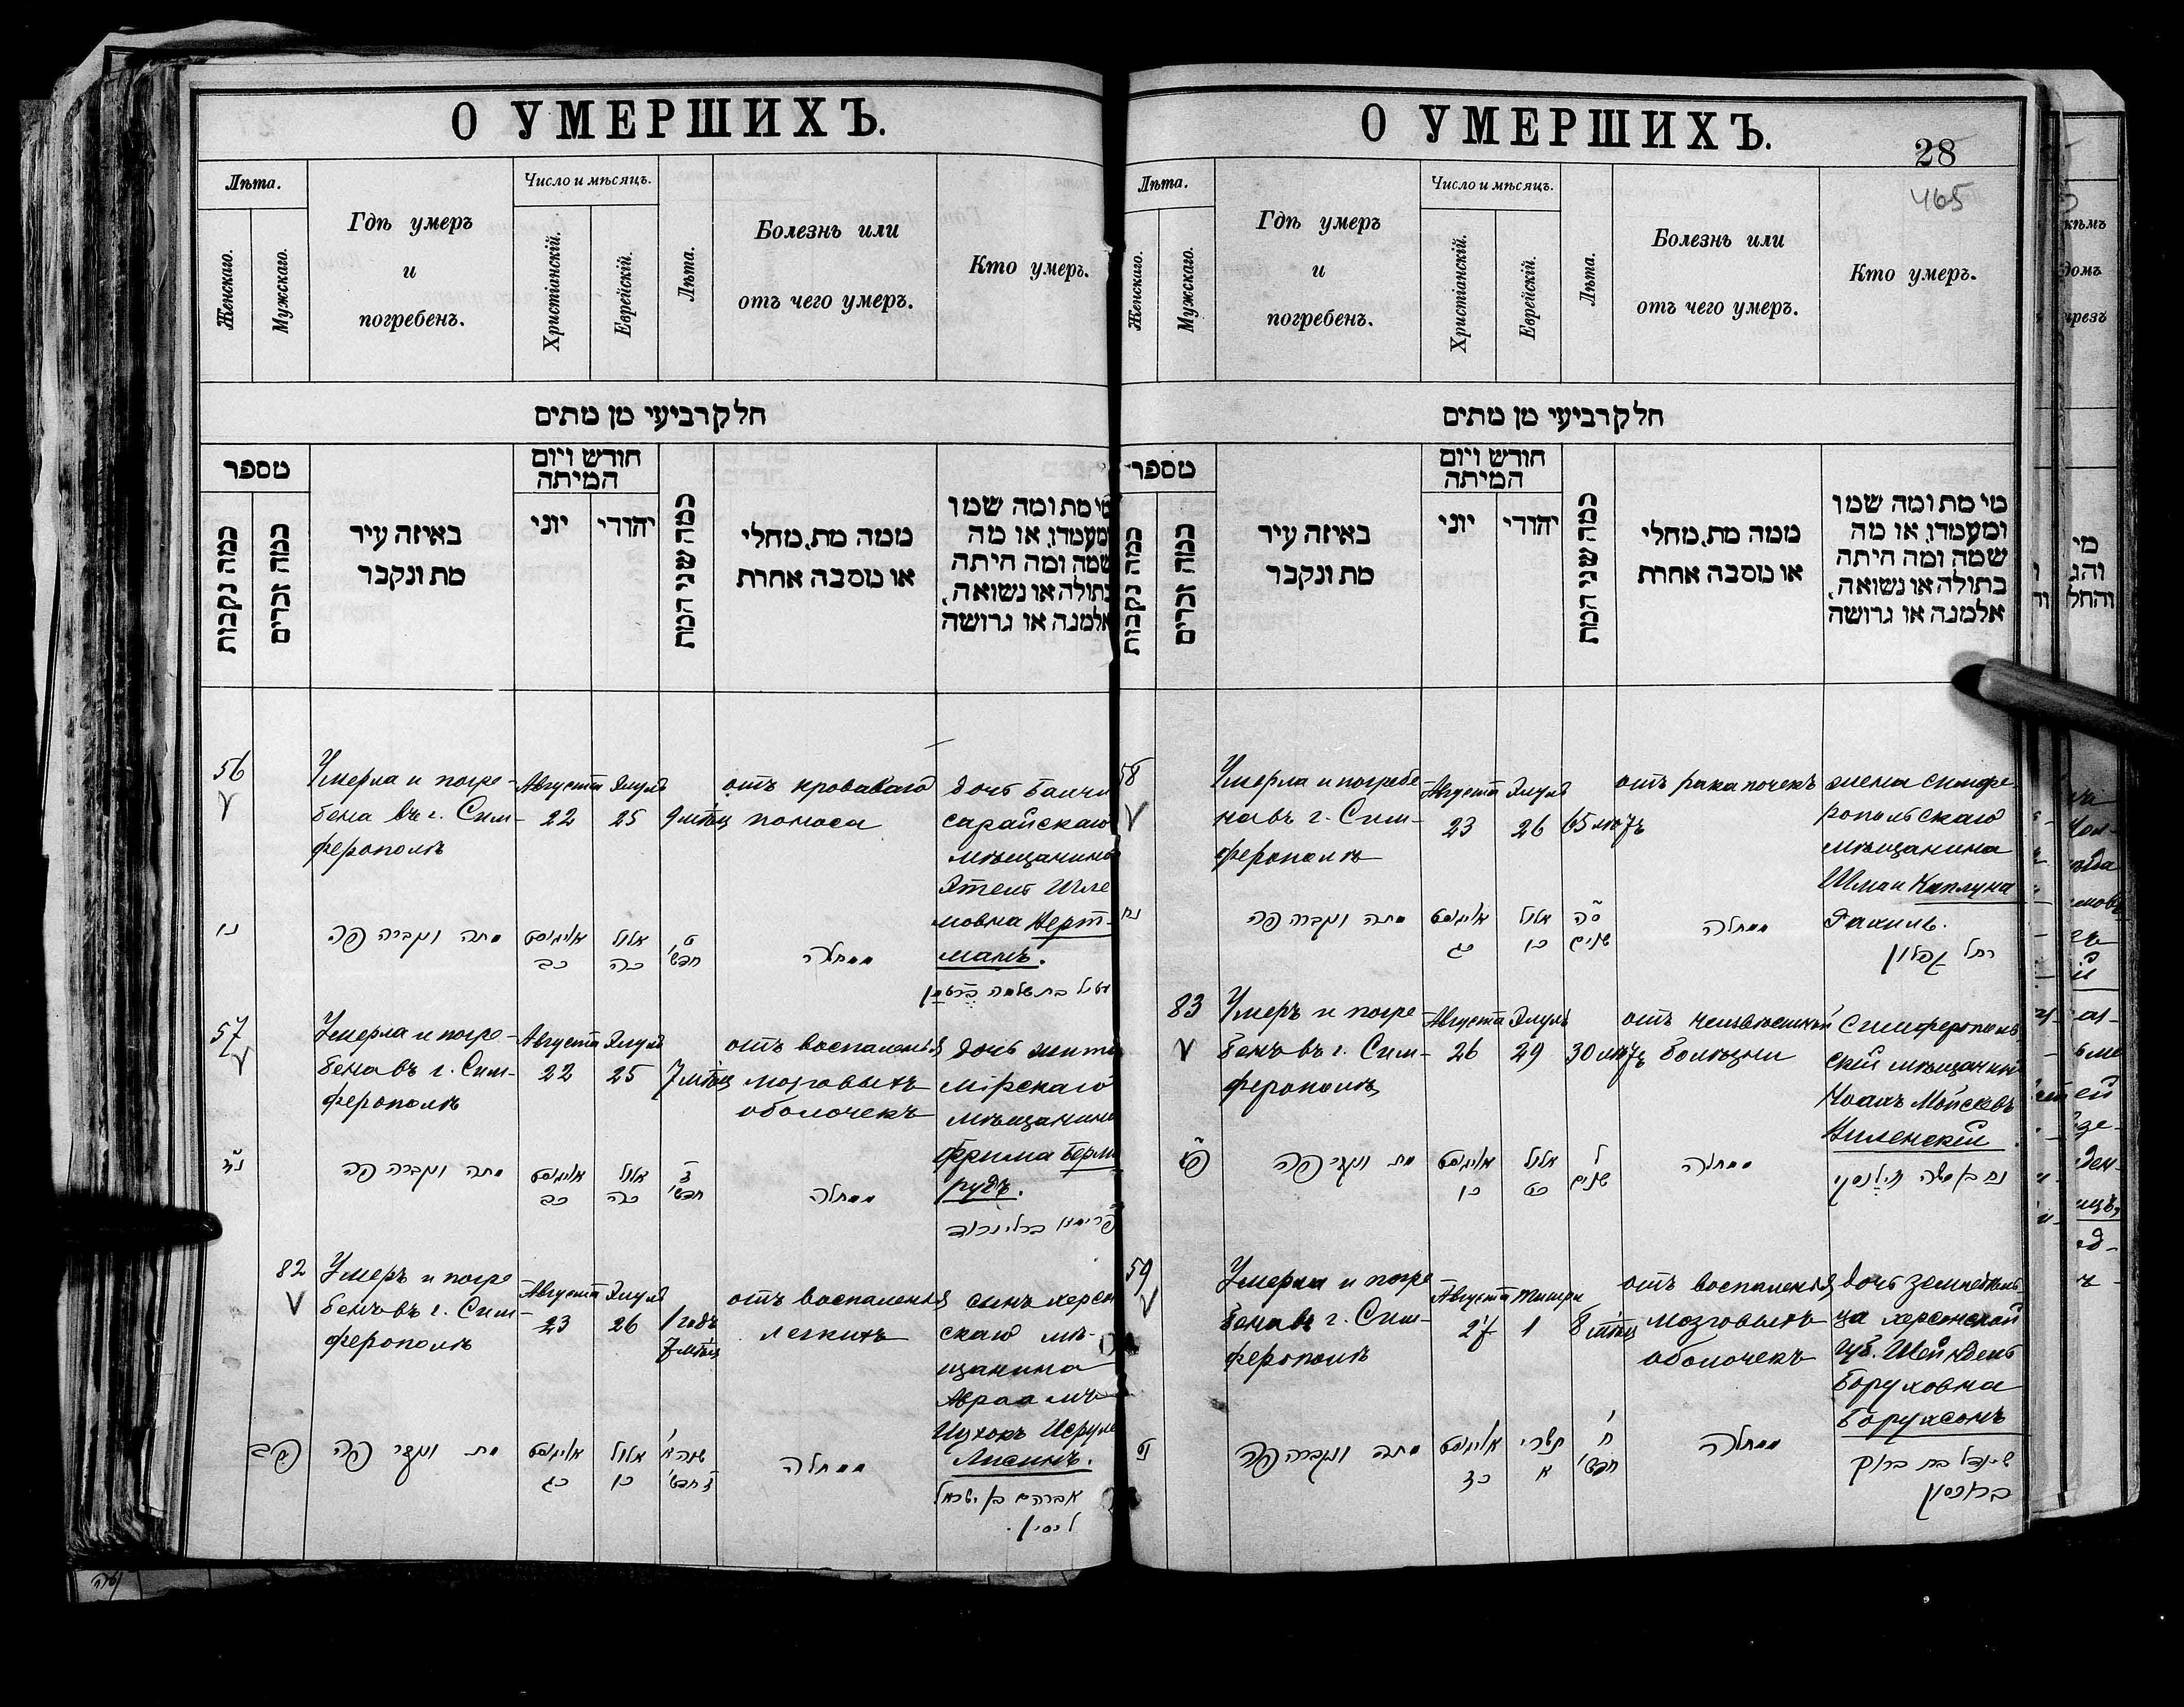 О УМЕРШИХЪ.
Лѣта.
Женскаго.
Мужскаго.
Гдѣ умеръ
и
погребенъ.
Число и мѣсяцъ.
Христіанскій.
Еврейскій.
Лѣта.
Болезнь или
отъ чего умеръ.
Кто умеръ.
חלק רביעי מן מתים
מספר
כמה נקבות
כמה זכרים
באיזה עיר
מת ונקבר
חודש ויום
המיתה
יוני
יהודי
כמה שני המת
ממה מת, מחלי
או מסבה אחרת
מי מת ומה שמו
ומעמדו, או מה
שמה ומה היתה
בתולה או נשואה,
אלמנה או גרושה
56
Умерла и погре-
бена въ г. Сим-
ферополѣ
Августа
22
Элулъ
25
9 мѣсц
отъ кроваваго
поноса
дочь Бахчи
сарайскаго
мѣщанина
Этель Шле
мовна
манъ.
נו
מתה ונקברה פה
אויגוסט
כב
אלול
כה
ט
חדשי
ממחלה
אטיל בת שלמה
57
Умерла и погре-
бена въ г. Сим-
ферополѣ
Августа
22
Элулъ
25
7 мѣсц
отъ воспаленья
мозговыхъ
оболочекъ
дочь жито
мірскаго
мѣщанина
Фрима Берли
рудъ.
נז
מתה ונקברה פה
אויגוסט
כב
אלול
כה
ז
חדשי
ממחלה
82
Умеръ и погре
бенъ въ г. Сим-
ферополѣ
Августа
23
Элулъ
26
1 годъ
7 мѣсц
отъ воспаленья
легкихъ
сынъ херсон
скаго мѣ-
щанина
Авраамъ
Ицхокъ Исруле
Лисинъ.
פב
מת ונקבר פה
אויגוסט
כג
אלול
כו
שנה א
ז חדשי
ממחלה
אברהם בן ישראל
ליסין.
О УМЕРШИХЪ.
28
465
Лѣта.
Женскаго.
Мужскаго.
Гдѣ умеръ
и
погребенъ.
Число и мѣсяцъ.
Христіанскій.
Еврейскій.
Лѣта.
Болезнь или
отъ чего умеръ.
Кто умеръ.
חלק רביעי מן מתים
מספר
כמה נקבות
כמה זכרים
באיזה עיר
מת ונקבר
חודש ויום
המיתה
יוני
יהודי
כמה שני המת
ממה מת, מחלי
או מסבה אחרת
מי מת ומה שמו
ומעמדו, או מה
שמה ומה היתה
בתולה או נשואה,
אלמנה או גרושה
58
Умерла и погребе-
на въ г. Сим-
ферополѣ
Августа
23
Элулъ
26
65 лѣтъ
отъ рака почекъ
жена симфе-
ропольскаго
мѣщанина
Шмаи Каплуна
Рахиль.
נח
מתה ונקברה פה
אויגוסט
כג
אלול
כו
סה
שנים
ממחלה
רחל קפלון
83
Умеръ и погре-
бенъ въ г. Сим-
ферополѣ
Августа
26
Элулъ
29
30 лѣтъ
отъ неизвѣстной
болѣзни
Симферополь
скій мѣщанинъ
Ноахъ Мойсеевъ
Виленскій.
פג
מת ונקבר פה
אויגוסט
כו
אלול
כט
ל
שנים
ממחלה
נח בן משה ווילנסקי
59
Умерла и погре
бена въ г. Сим-
ферополѣ
Августа
27
Тишри
1
8 мѣсц
отъ воспаленья
мозговыхъ
оболочекъ
дочь земледѣль
ца херсонской
губ. Шейндель
Боруховна
Борухсонъ
נט
מתה ונקברה פה
אויגוסט
כז
תשרי
א
ח
חדשי
ממחלה
שיינדל בת ברוך
ברוכסון